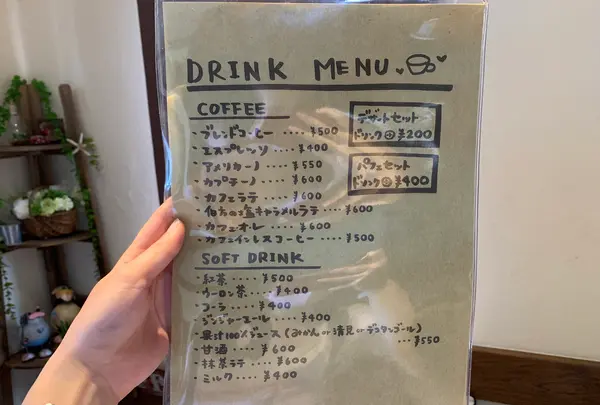 DRINK MENU
COFFEE
・ブレンドコーヒー ････ ¥500
・エスプレッソ ････ ¥400
・アメリカーノ ････ ¥550
・カプチーノ ････ ¥600
・カフェラテ ････ ¥600
・伯方の塩キャラメルラテ ････ ¥600
・カフェオ・レ ････ ¥600
・カフェインレスコーヒー ････ ¥500
デザートセット
ドリンク⊕¥200
パフェセット
ドリンク⊕¥400
SOFT DRINK
・紅茶 ････ ¥500
・ウーロン茶 ････ ¥400
・コーラ ････ ¥400
・ジンジャーエール ････ ¥400
・果汁100%ジュース (みかん or 清見 or デコタンゴール)
････ ¥550
・甘酒 ････ ¥600
・抹茶ラテ ････ ¥600
・ミルク ････ ¥400